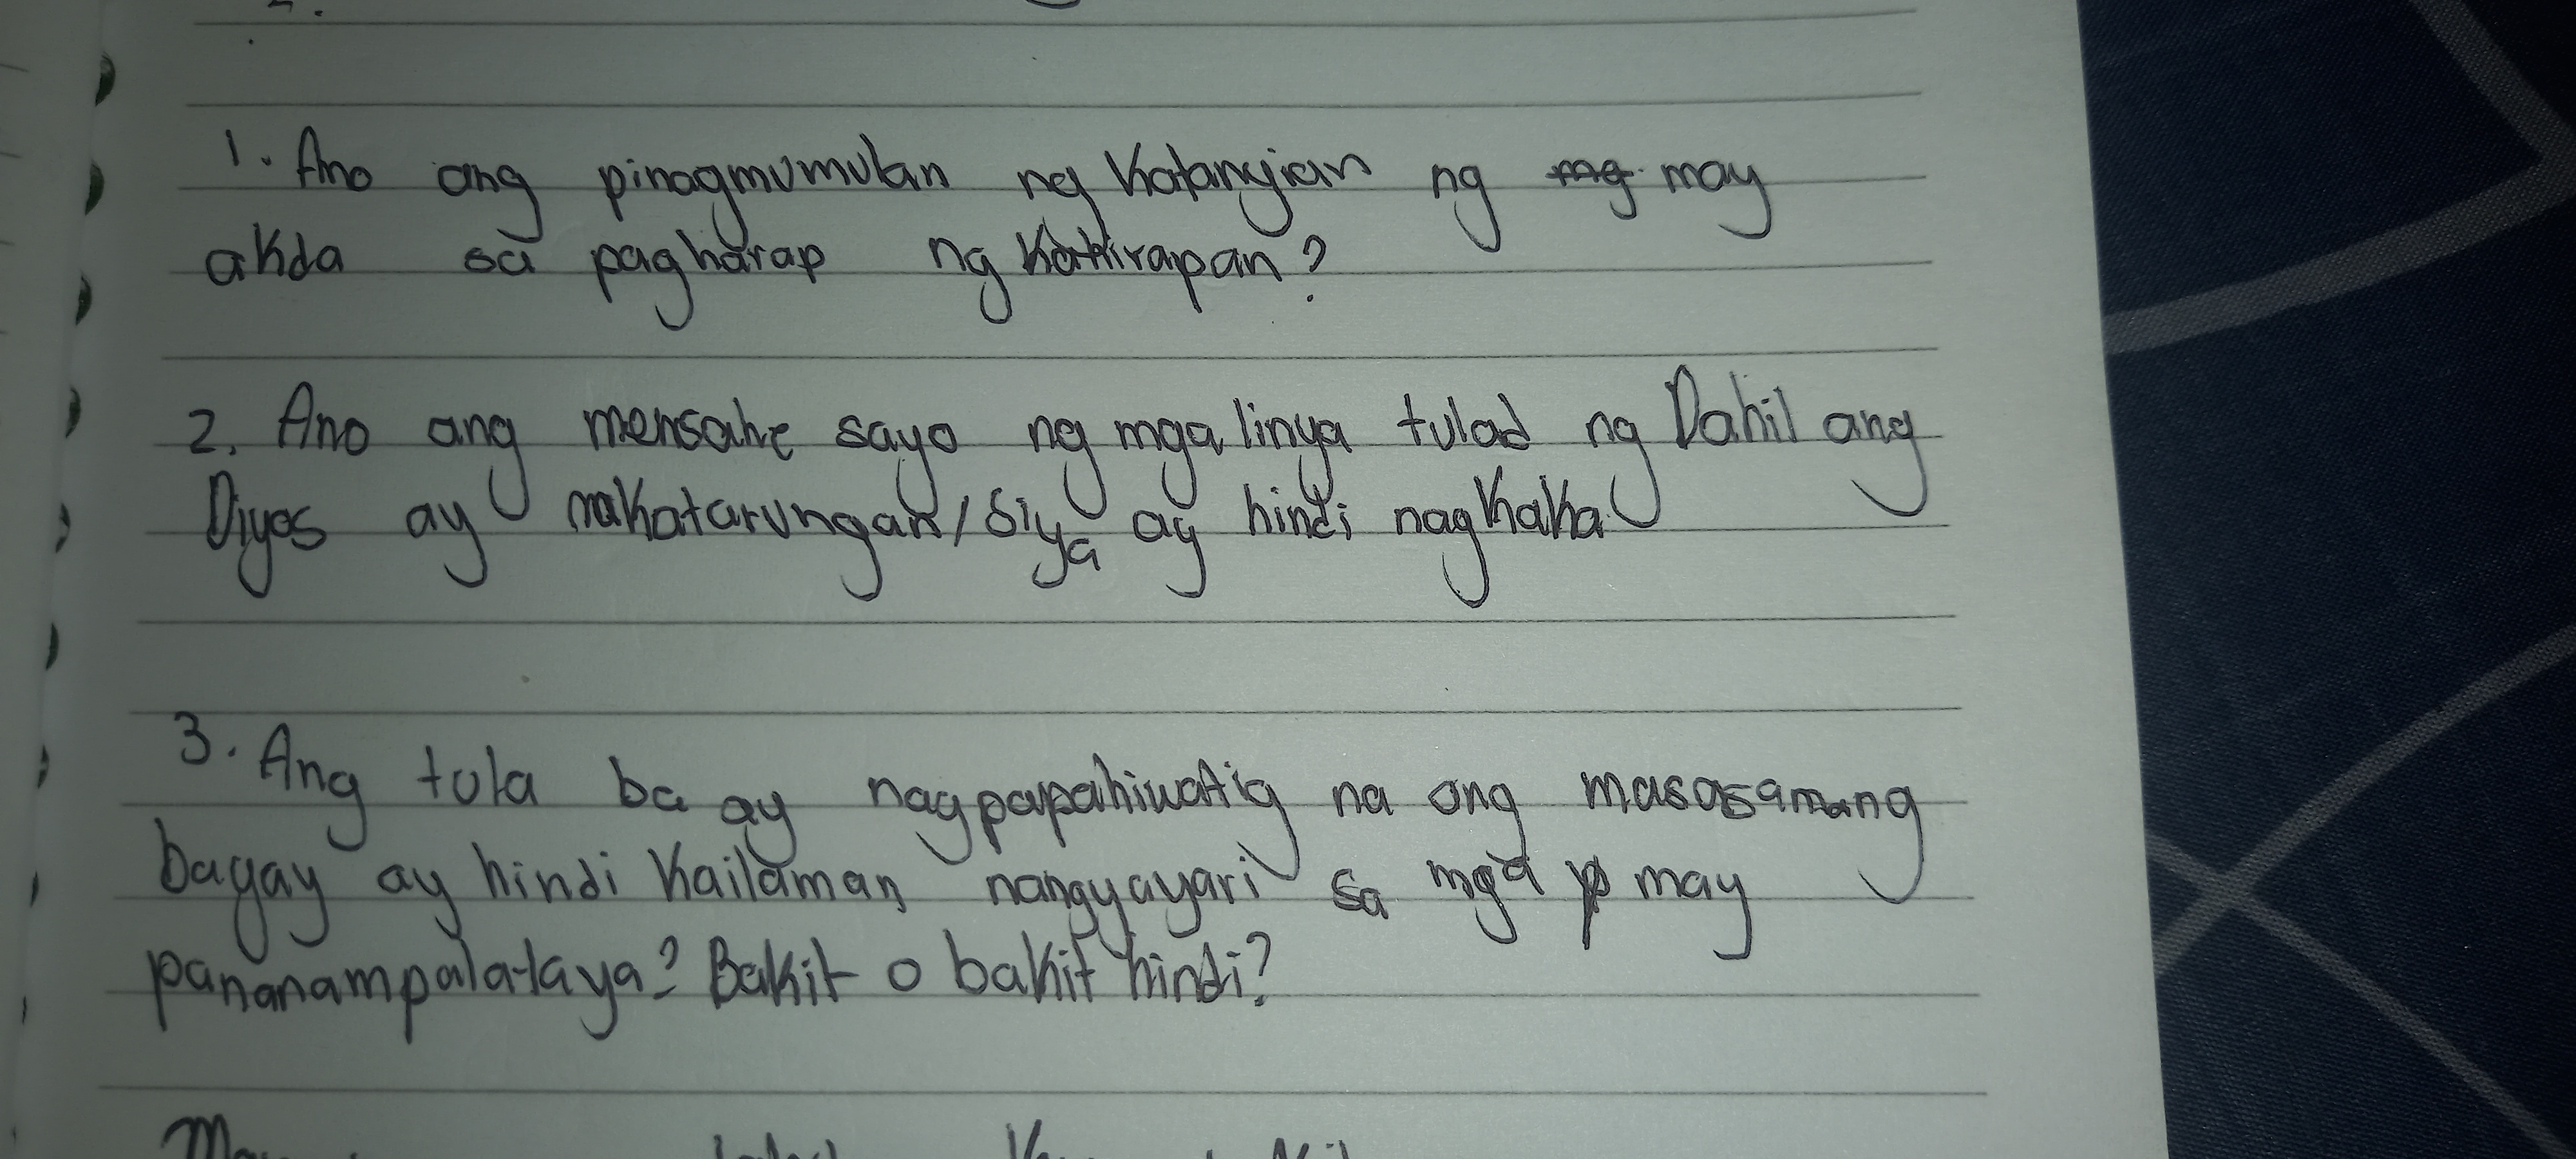 1. Ano ang pinagmumulan ng katangian ng may
akda sa pagharap ng kahirapan?
2. Ano ang mensahe sayo ng mga linya tulad ng Dahil ang
Diyos ay makatarungan/siya ay hindi nagkaka
3. Ang tula ba ay nagpapahiwatig na ang masasamang
bagay ay hindi kailaman nangyayari sa mga may
pananampalataya? Bakit o bakit hindi?